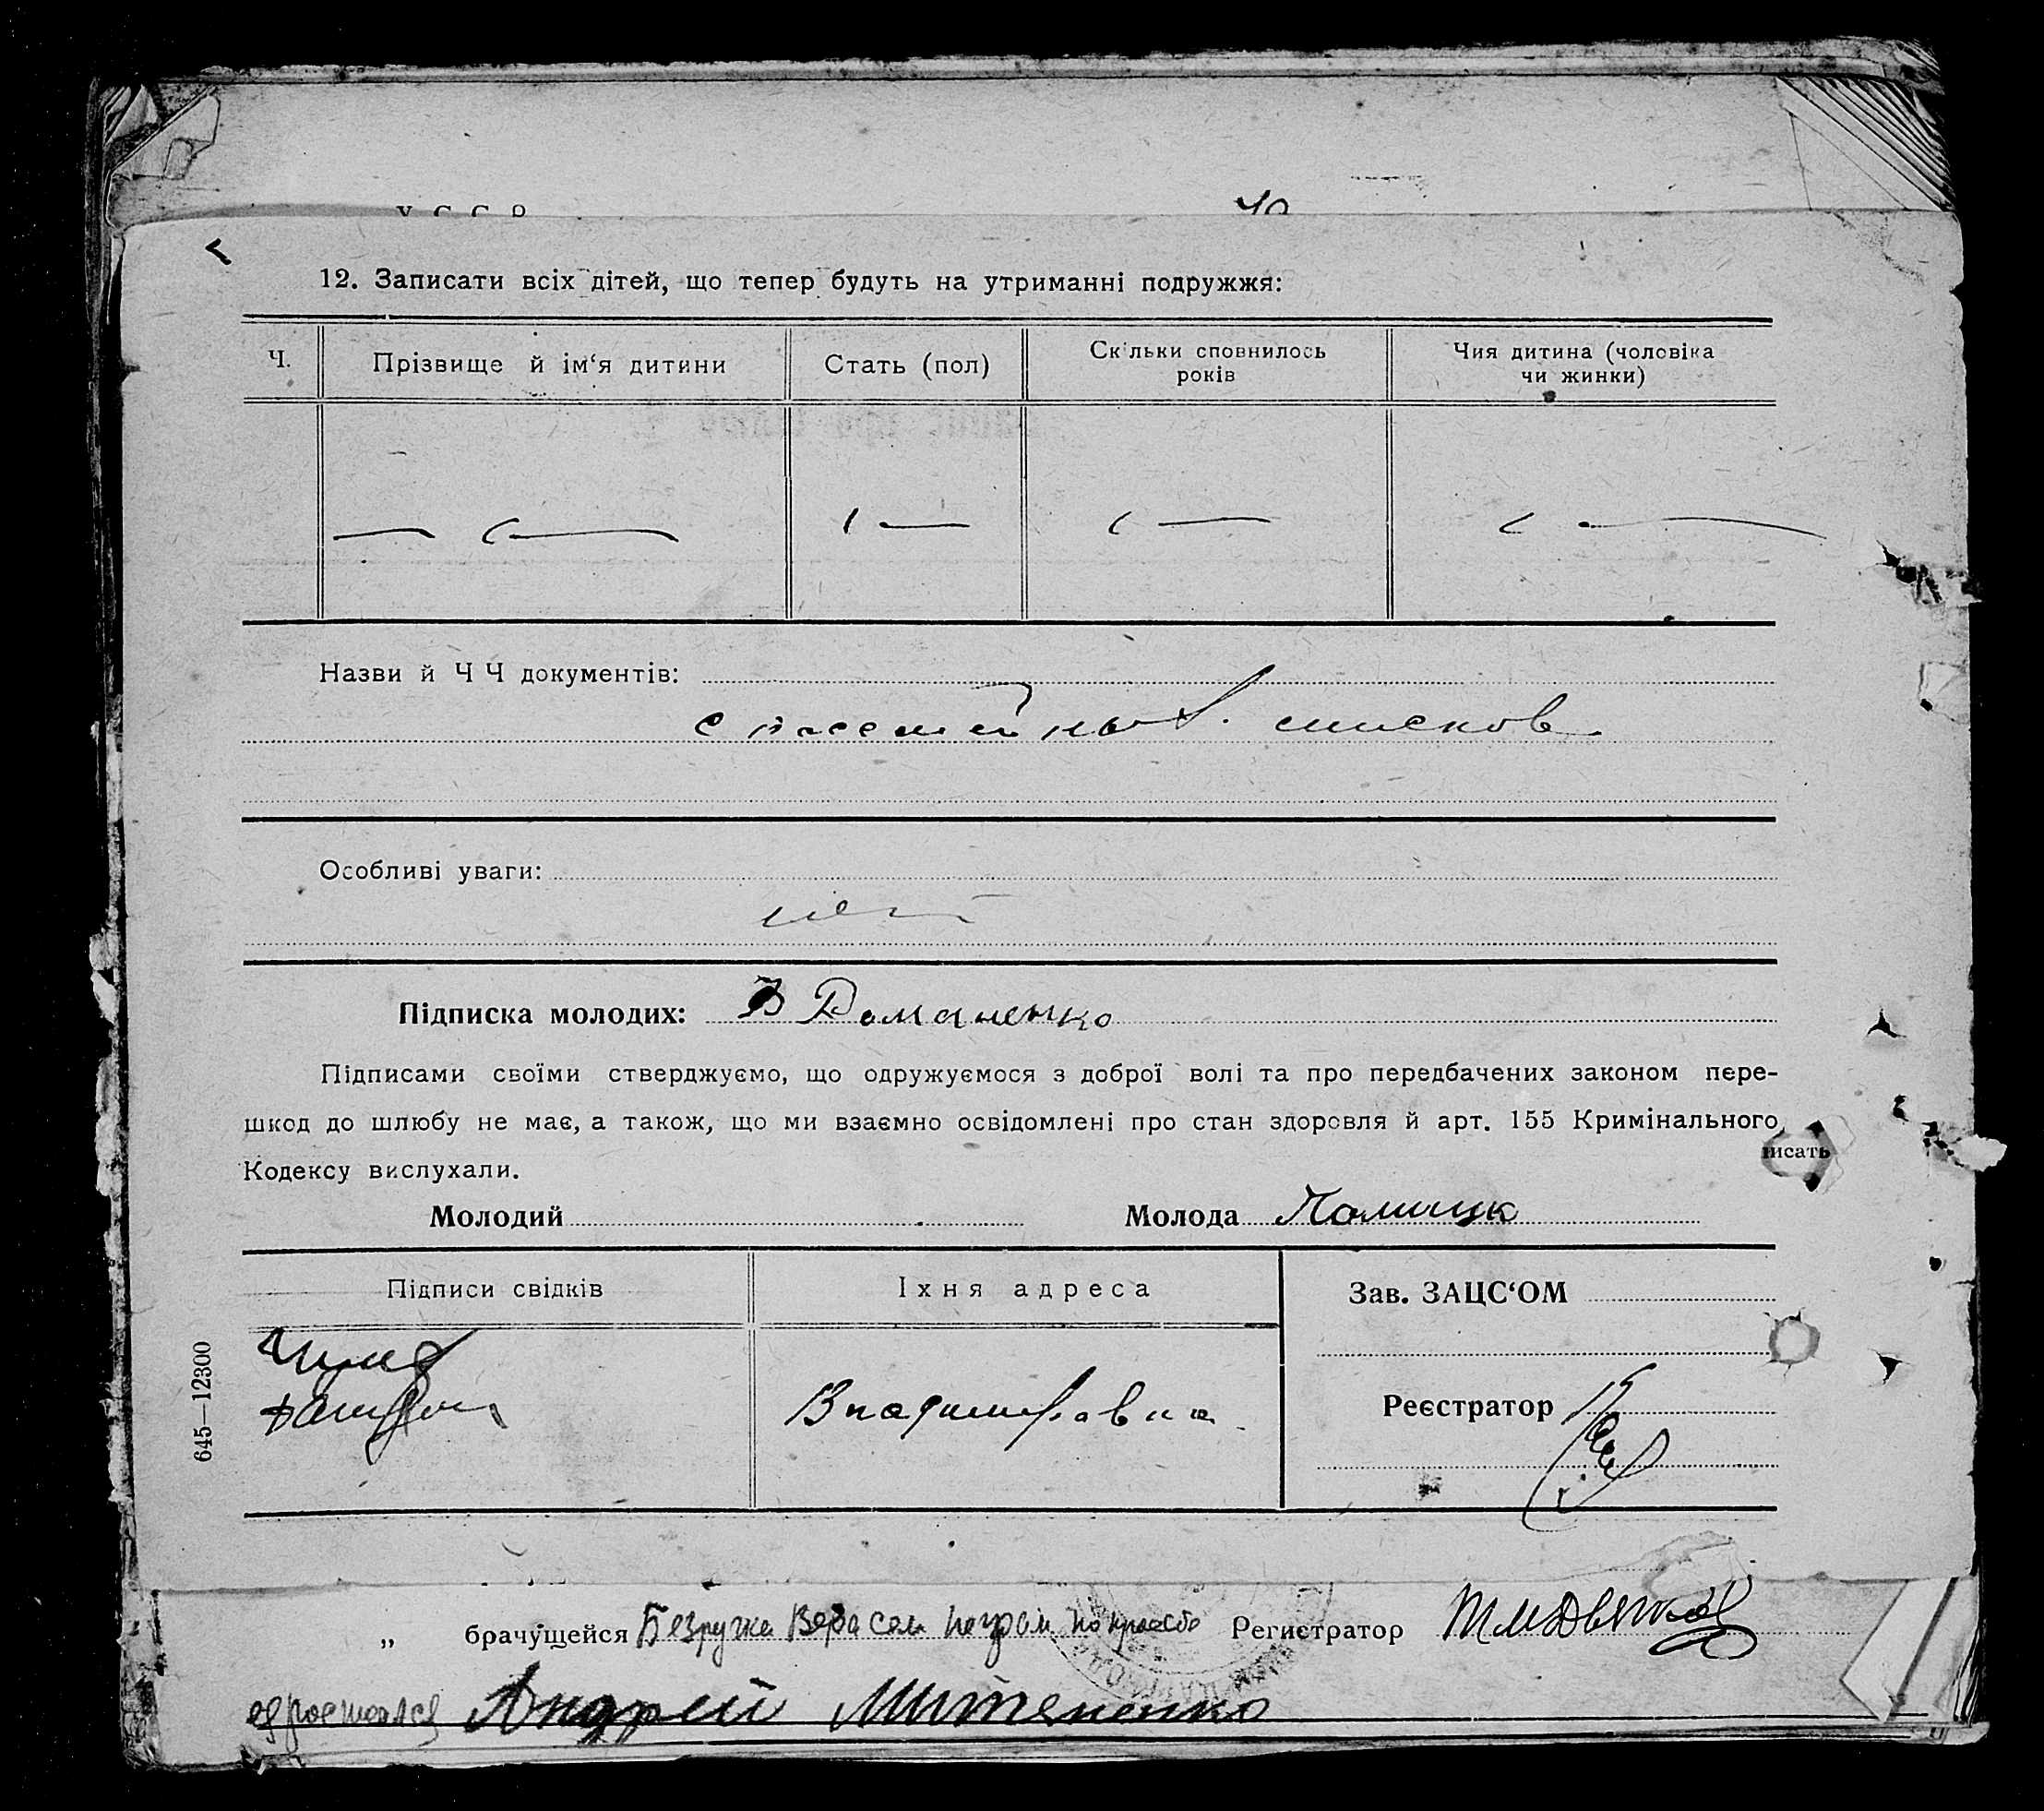 У С С Р
12. Записати всіх дітей, що тепер будуть на утриманні подружжя:
Ч. Прізвище й ім‘я дитини Стать (пол) Скільки сповнилось років Чия дитина (чоловіка чи жинки)
Назви й Ч Ч документів:
с посемейных списков
Особливі уваги:
нет
Підписка молодих: В Романенко
Підписами своїми стверджуємо, що одружуємося з доброї волі та про передбачених законом пере-
шкод до шлюбу не має, а також, що ми взаємно освідомлені про стан здоровля й арт. 155 Кримінального
Кодексу вислухали.
исать
Молодий Молода
Підписи свідків Їхня адреса Зав. ЗАЦС‘ОМ
Владимировка
Реєстратор
645—12300
„ брачущейся Безручка Вера Регистратор
Андрей